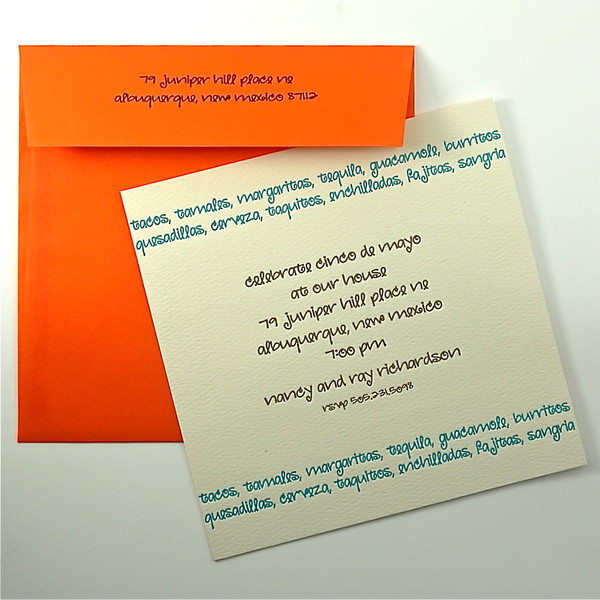 79 juniper hill place ne
albuquerque, new mexico 87112
tacos, tamales, margaritas, tequila, guacamole, burritos
quesadillas, cerveza, taquitos, enchilladas, fajitas, sangria
celebrate cinco de mayo
at our house
79 juniper hill place ne
albuquerque, new mexico
7:00 pm
nancy and ray richardson
rsvp 505.231.5098
tacos, tamales, margaritas, tequila, guacamole, burritos
quesadillas, cerveza, taquitos, enchilladas, fajitas, sangria